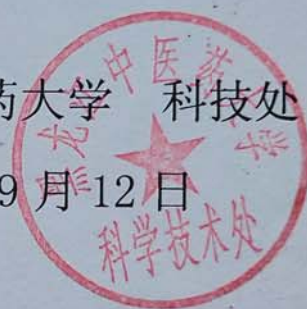 药大学 科技处
9月12日
黑龙江中医药大学
科学技术处